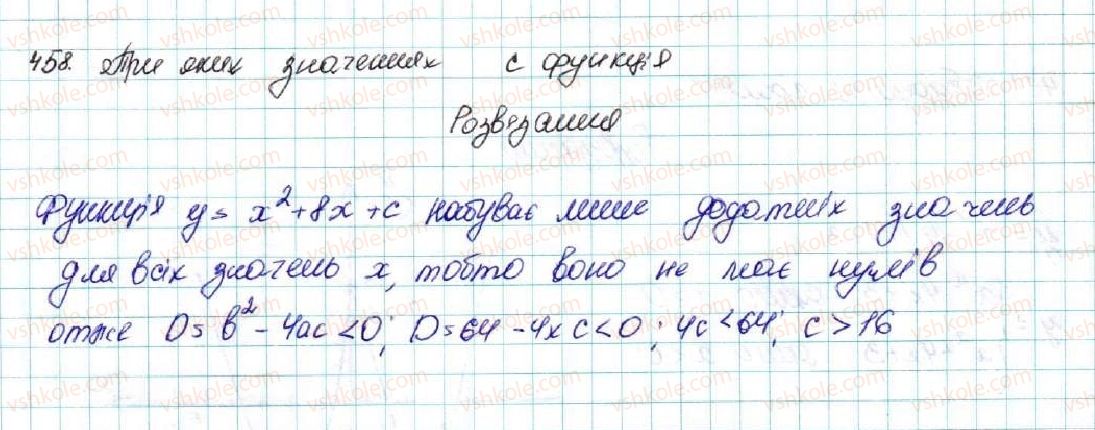 458. При яких значеннях с функція
Розв'язання
Функція y = x² + 8x + c набуває лише додатніх значень
для всіх значень x, тобто воно не має нулів
отже D = b² - 4ac < 0; D = 64 - 4x c < 0; 4c < 64; c > 16